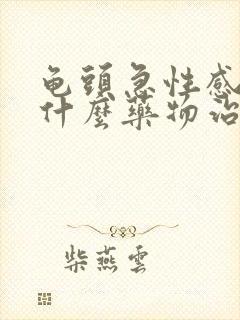 龟頭急性感
什麼藥物治
柴燕雲